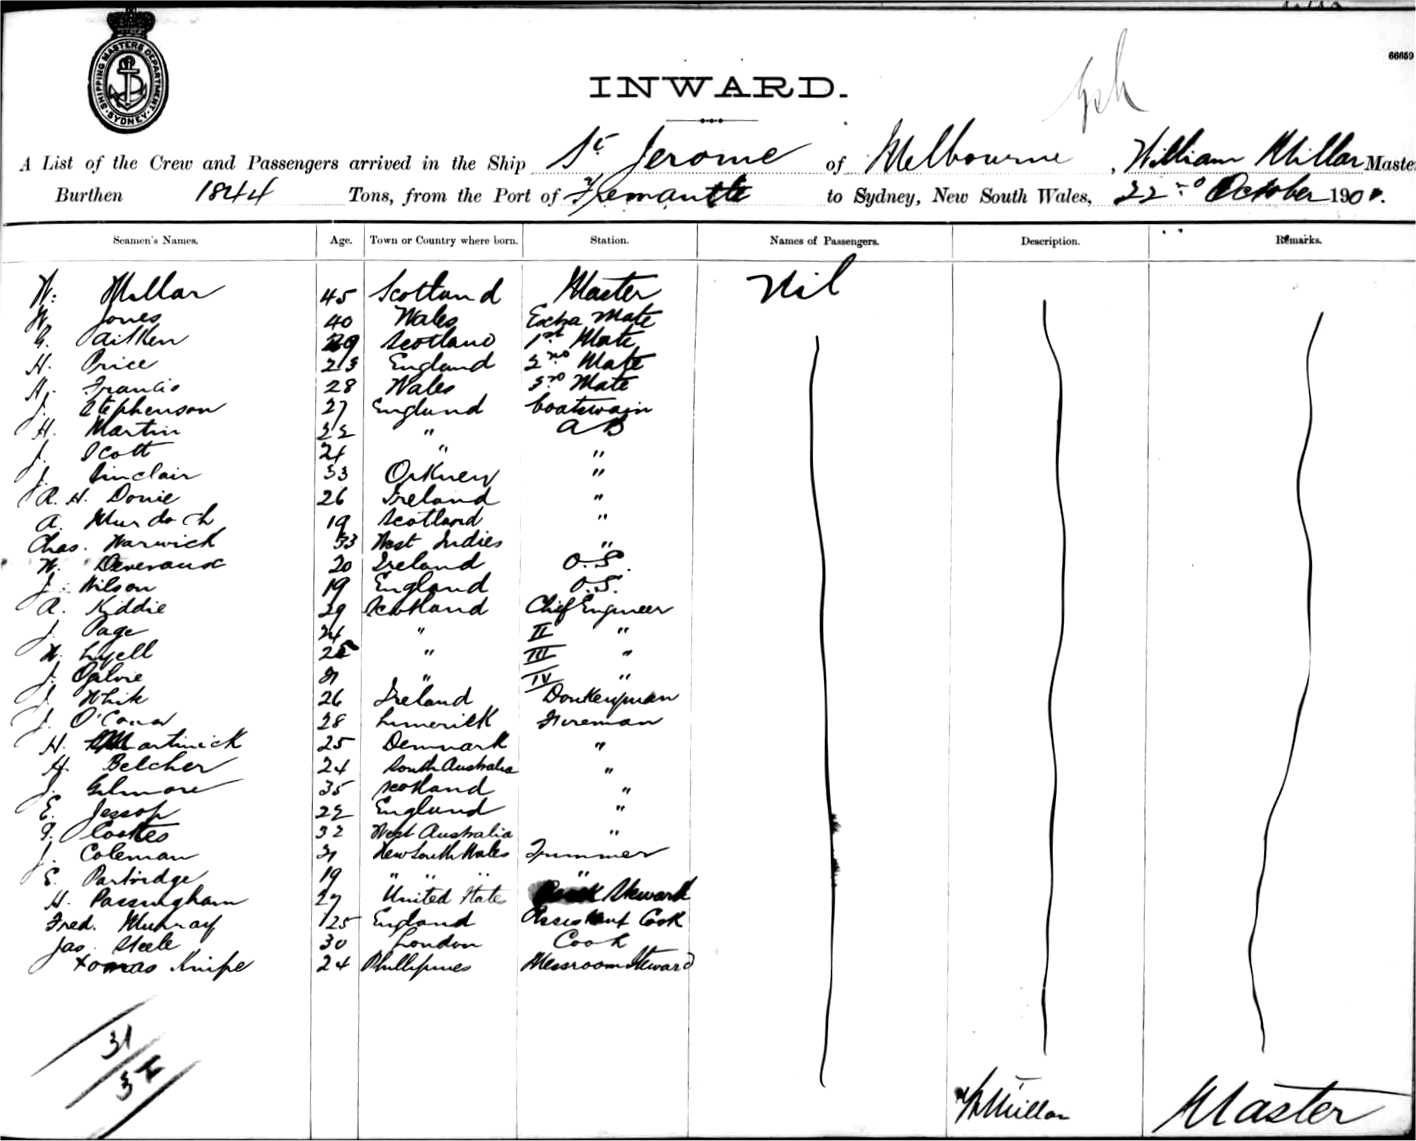 SHIPPING MASTERS DEPARTMENT
SYDNEY
66659
INWARD.
A List of the Crew and Passengers arrived in the Ship St Jerome of Melbourne, William Millar Master
Burthen 1844 Tons, from the Port of Fremantle to Sydney, New South Wales, 22nd October 190
Seamen's Names. Age. Town or Country where born. Station. Names of Passengers. Description. Remarks.
W. Millar 45 Scotland Master Nil
W. Jones 40 Wales Extra Mate
G. Aitken 29 Scotland 1st Mate
H. Price 23 England 2nd Mate
H. Francis 28 Wales 3rd Mate
J. Stephenson 27 England boatswain
H. Martin 22 " AB
J. Scott 24 " "
J. Sinclair 33 Orkney "
A. H. Downie 26 Ireland "
A. Murdoch 19 Scotland "
Chas. Warwick 33 West Indies "
W. Deveraux 20 Ireland O.S.
J. Wilson 19 England O.S.
A. Kiddie 29 Scotland Chief Engineer
J. Page 24 " II "
W. Lyell 25 " III "
J. Ogilvie " IV "
J. White 26 Ireland Donkeyman
J. O'Conor 28 Limerick Fireman
H. Martinick 25 Denmark "
H. Belcher 24 South Australia "
J. Gilmore 35 Scotland "
E. Jessop 22 England "
G. Cootes 32 West Australia "
J. Coleman New South Wales Trimmer
E. Partridge 19 " " " "
H. Passingham 27 United State Steward
Fred. Murray 25 England Assistant Cook
Jas. Steele 30 London Cook
Xomas Knipe 24 Phillipines Messroom Steward
31
32
W Millar Master